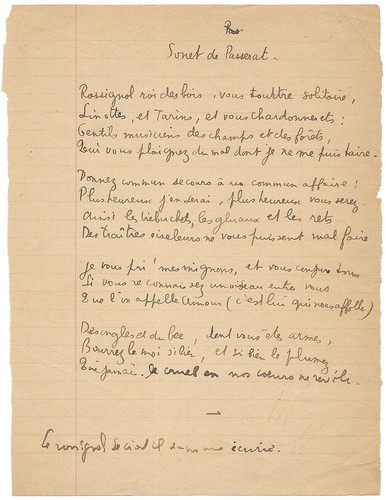 Sonet de Passerat.
Rossignol roi des bois, vous tourtre solitaire,
Linottes, et Tarins, et vous chardonnerets:
Gentils musiciens des champs et des forêts,
Qui vous plaignez du mal dont je ne me puis taire.
Donnez commun secours à un commun affaire!
Plus heureux j'en serai, plus heureux vous serez.
Ainsi les trébuchets, les gluaux et les rets
Des traîtres oiseleurs ne vous puissent mal faire
Je vous pri' mes mignons, et vous conjure tous
Si vous reconnaissez un oiseau entre vous
Que l'on appelle Amour (c'est lui qui nous affolle)
Des ongles et du bec, dont vous êtes armés,
Bourrez le moi si bien, et si bien le plumez
Que jamais le cruel en nos cœurs ne revole.
Le rossignol dans une écurie.